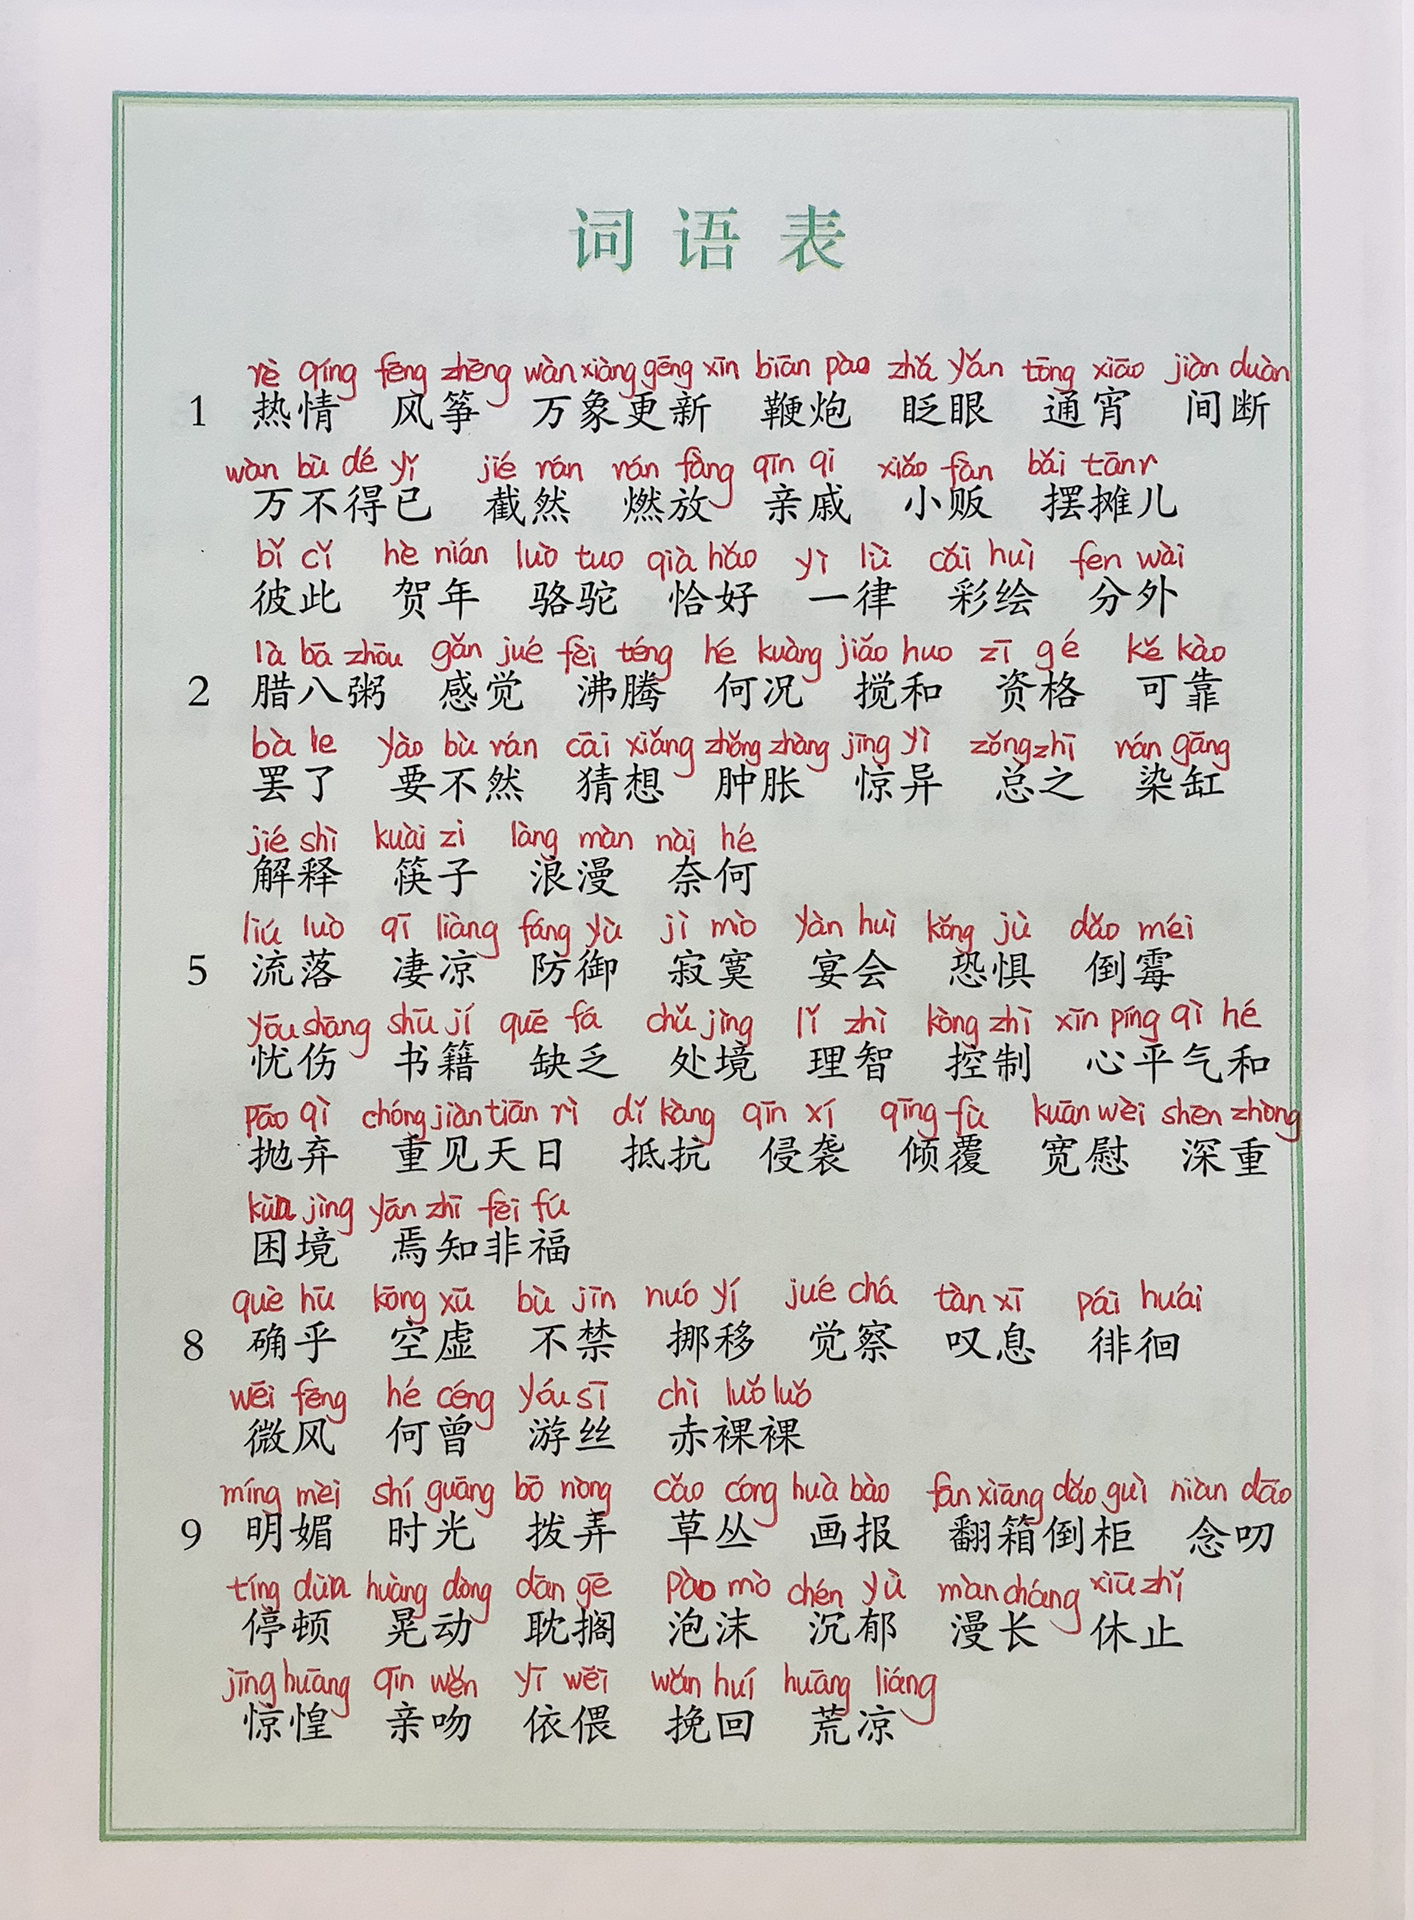 词语表
rè qíng fēng zhēng wàn xiàng gēng xīn biān pào zhǎ yǎn tōng xiāo jiàn duàn
1 热情 风筝 万象更新 鞭炮 眨眼 通宵 间断
wàn bù dé yǐ jié rán rán fàng qīn qi xiǎo fàn bǎi tānr
万不得已 截然 燃放 亲戚 小贩 摆摊儿
bǐ cǐ hè nián luò tuo qià hǎo yì lǜ cǎi huì fen wài
彼此 贺年 骆驼 恰好 一律 彩绘 分外
là bā zhōu gǎn jué fèi téng hé kuàng jiǎo huo zī gé kě kào
2 腊八粥 感觉 沸腾 何况 搅和 资格 可靠
bà le yào bù rán cāi xiǎng zhǒng zhàng jīng yì zǒng zhī rán gāng
罢了 要不然 猜想 肿胀 惊异 总之 染缸
jié shì kuài zi làng màn nài hé
解释 筷子 浪漫 奈何
liú luò qī liàng fáng yù jì mò yàn huì kǒng jù dǎo méi
5 流落 凄凉 防御 寂寞 宴会 恐惧 倒霉
yōu shāng shū jí quē fá chǔ jìng lǐ zhì kòng zhì xīn píng qì hé
忧伤 书籍 缺乏 处境 理智 控制 心平气和
pāo qì chóng jiàn tiān rì dǐ kàng qīn xí qīng fù kuān wèi shēn zhòng
抛弃 重见天日 抵抗 侵袭 倾覆 宽慰 深重
kùn jìng yān zhī fēi fú
困境 焉知非福
què hū kōng xū bù jīn nuó yí jué chá tàn xī pái huái
8 确乎 空虚 不禁 挪移 觉察 叹息 徘徊
wēi fēng hé céng yóu sī chì luǒ luǒ
微风 何曾 游丝 赤裸裸
míng mèi shí guāng bō nòng cǎo cóng huà bào fān xiāng dǎo guì niàn dāo
9 明媚 时光 拨弄 草丛 画报 翻箱倒柜 念叨
tíng dùn huàng dòng dān gē pào mò chén yù màn cháng xiū zhǐ
停顿 晃动 耽搁 泡沫 沉郁 漫长 休止
jīng huāng qīn wěn yī wēi wǎn huí huāng liáng
惊惶 亲吻 依偎 挽回 荒凉